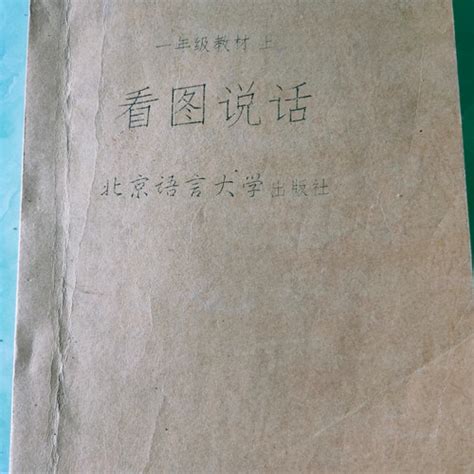 一年级教材 上
看图说话
北京语言大学出版社